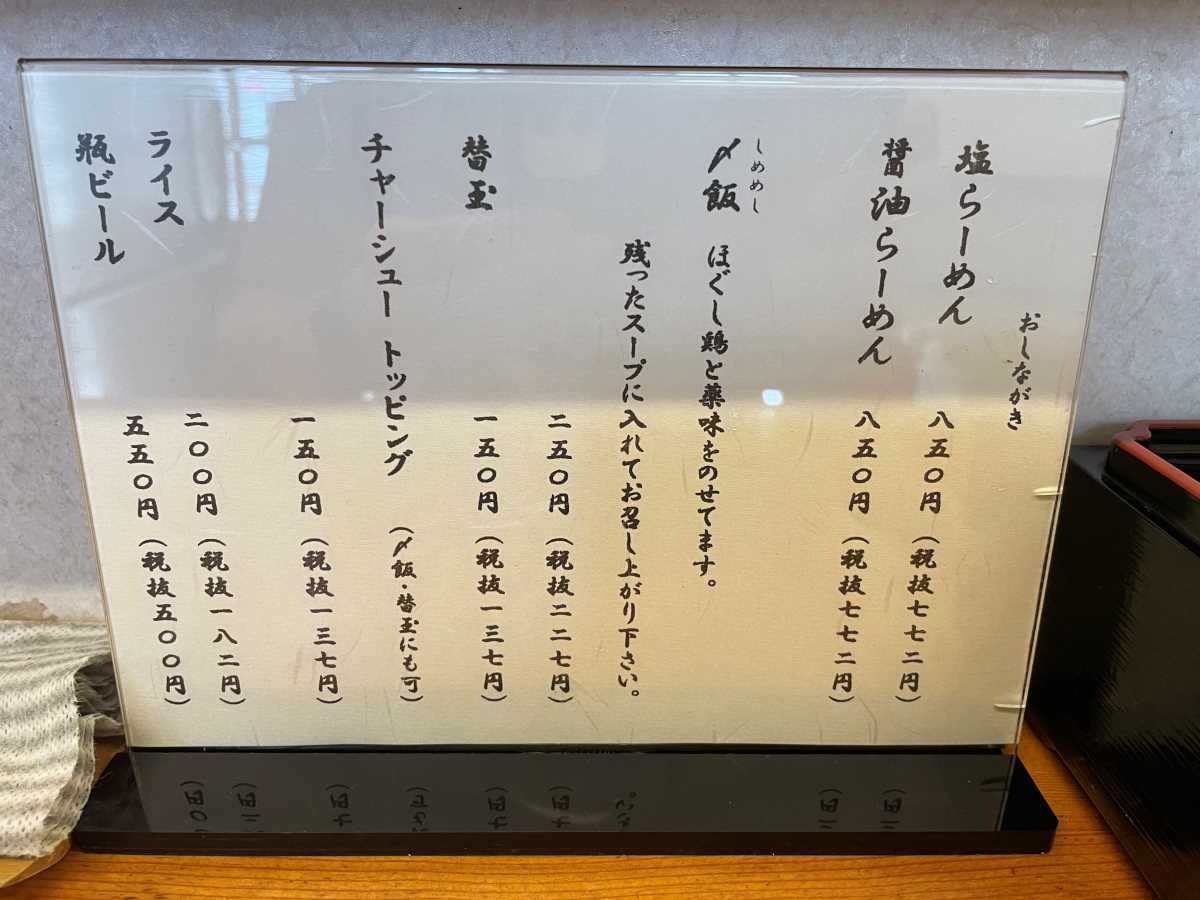 おしながき
塩らーめん 八五〇円(税抜七七二円)
醤油らーめん 八五〇円(税抜七七二円)
しめめし
〆飯 ほぐし鶏と薬味をのせてます。
残ったスープに入れてお召し上がり下さい。
二五〇円(税抜二二七円)
替玉 一五〇円(税抜一三七円)
チャーシュー トッピング (〆飯・替玉にも可)
一五〇円(税抜一三七円)
ライス 二〇〇円(税抜一八二円)
瓶ビール 五五〇円(税抜五〇〇円)